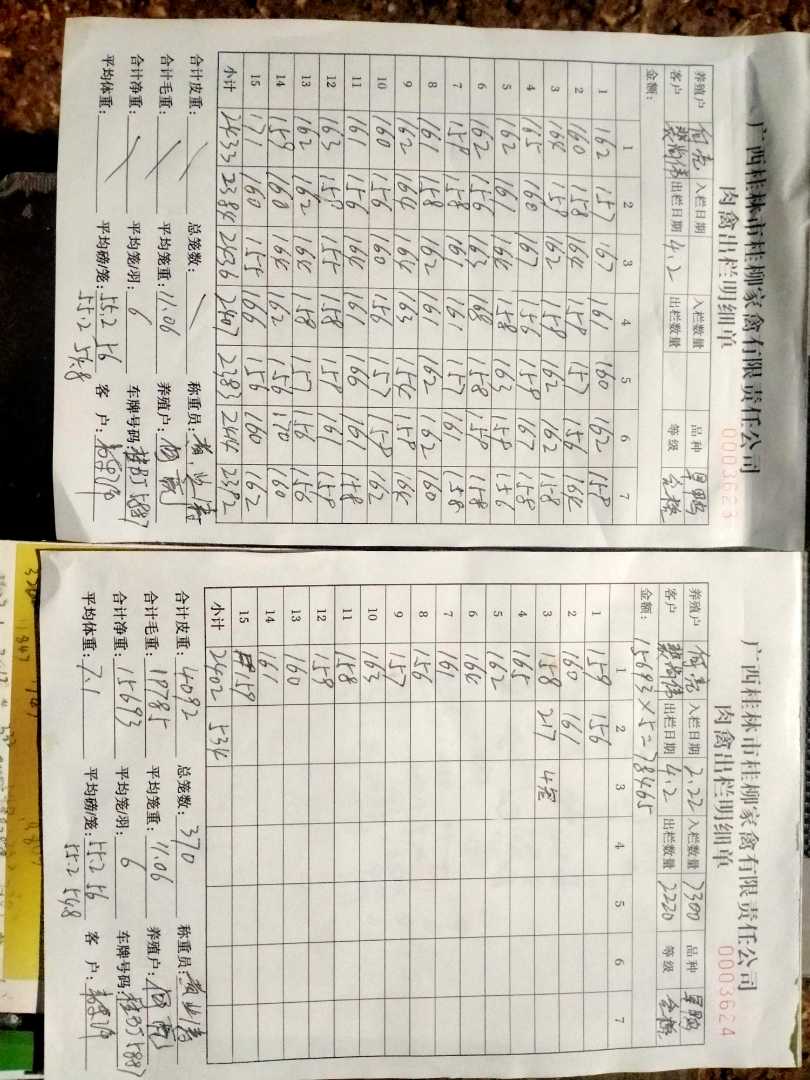 广西桂林市桂柳家禽有限责任公司
肉禽出栏明细单 0003623
养殖户 何亮 入栏日期 入栏数量 品种 旱鸭
客户 出栏日期 4.2 出栏数量 等级 合格
金额:
1 2 3 4 5 6 7
1 162 157 167 161 160 162 158
2 160 158 164 158 157 156 164
3 164 159 162 158 162 162 158
4 165 160 167 156 158 167 158
5 162 161 164 158 163 158 156
6 162 156 163 158 158 158
7 158 158 161 161 157 161 158
8 161 158 162 161 162 162 160
9 162 164 164 163 154 158 164
10 160 156 160 156 157 158 162
11 161 156 164 161 166 161 158
12 163 158 155 158 158 161 158
13 162 162 164 158 157 156 156
14 159 160 164 162 156 170 160
15 171 160 155 166 156 160 162
小计 2433 2384 2436 2407 2383 2444 2392
合计皮重: 总笼数: 称重员:
合计毛重: 平均笼重: 11.06 养殖户: 何亮
合计净重: 平均笼/羽: 6 车牌号码: 桂
平均体重: 平均磅/笼: 55.2 56 客 户:
55.2 54.8
广西桂林市桂柳家禽有限责任公司
肉禽出栏明细单 0003624
养殖户 何亮 入栏日期 2.22 入栏数量 7300 品种 旱鸭
客户 出栏日期 4.2 出栏数量 2220 等级 合格
金额: 15693×5=78465
1 2 3 4 5 6 7
1 159 156
2 160 161
3 158 217 4笼
4 165
5 162
6 164
7 161
8 156
9 157
10 163
11 158
12 159
13 160
14 161
15 159
小计 2402 534
合计皮重: 4092 总笼数: 370 称重员:
合计毛重: 19785 平均笼重: 11.06 养殖户: 何亮
合计净重: 15693 平均笼/羽: 6 车牌号码: 桂
平均体重: 7.1 平均磅/笼: 55.2 56 客 户:
55.2 54.8